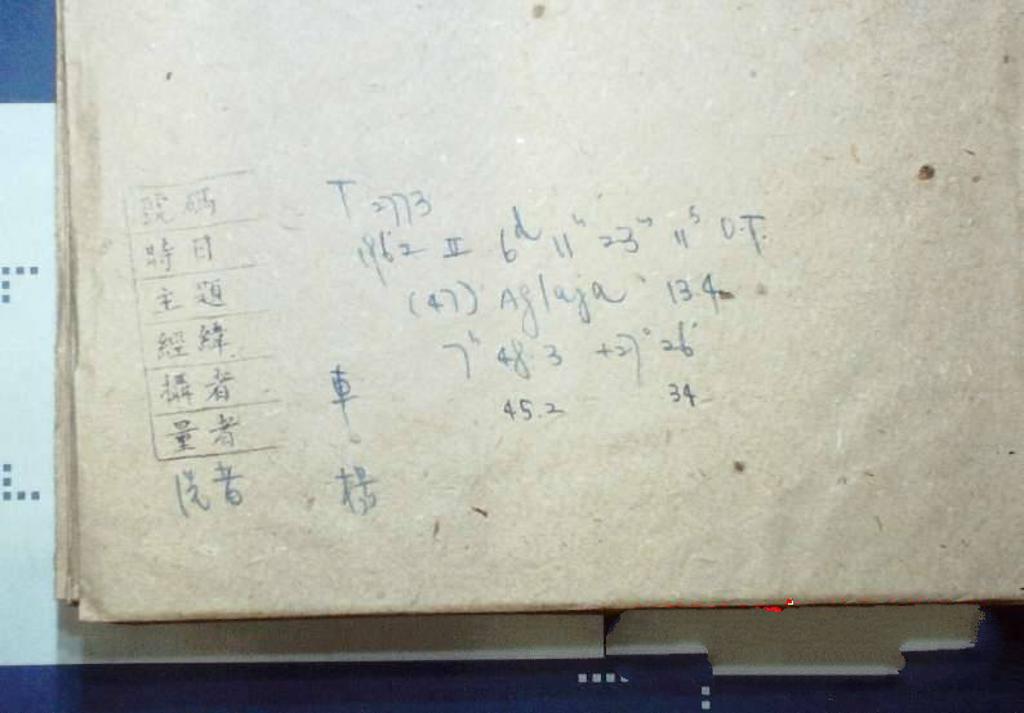 號碼 T 2773
時日 1962 II 6d 11h 23m 11s U.T.
主題 (47) Aglaja 13.4
經緯 7h 48.3 +27° 26'
攝者 車 45.2 34
量者
洗者 楊